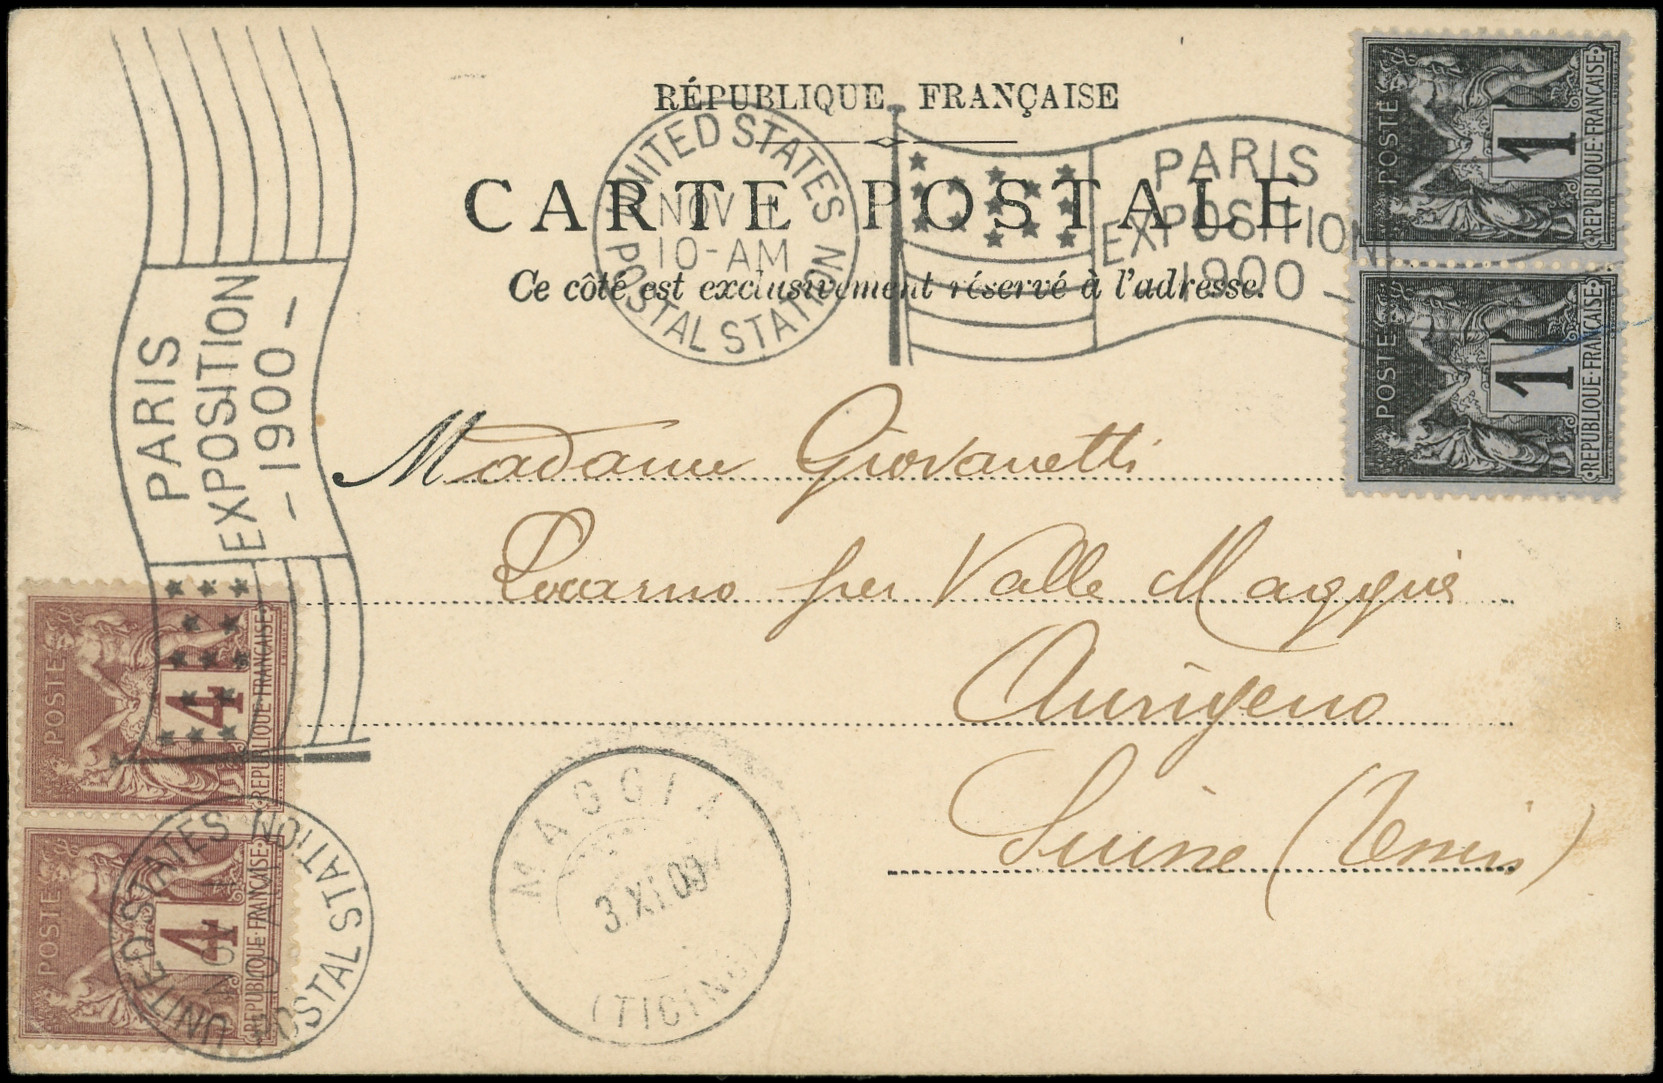 RÉPUBLIQUE FRANÇAISE
CARTE POSTALE
Ce côté est exclusivement réservé à l'adresse.
UNITED STATES
NOV 1
10-AM
POSTAL STATION
PARIS
EXPOSITION
-1900-
POSTE
1
RÉPUBLIQUE·FRANÇAISE
POSTE
1
RÉPUBLIQUE·FRANÇAISE
PARIS
EXPOSITION
-1900-
Madame Giovanetti
Locarno per Valle Maggia
Aurigeno
Suisse (Tessin)
POSTE
4
RÉPUBLIQUE·FRANÇAISE
POSTE
4
RÉPUBLIQUE·FRANÇAISE
UNITED STATES
NOV 1
POSTAL STATION
MAGGIA
3.XI.00
(TICINO)